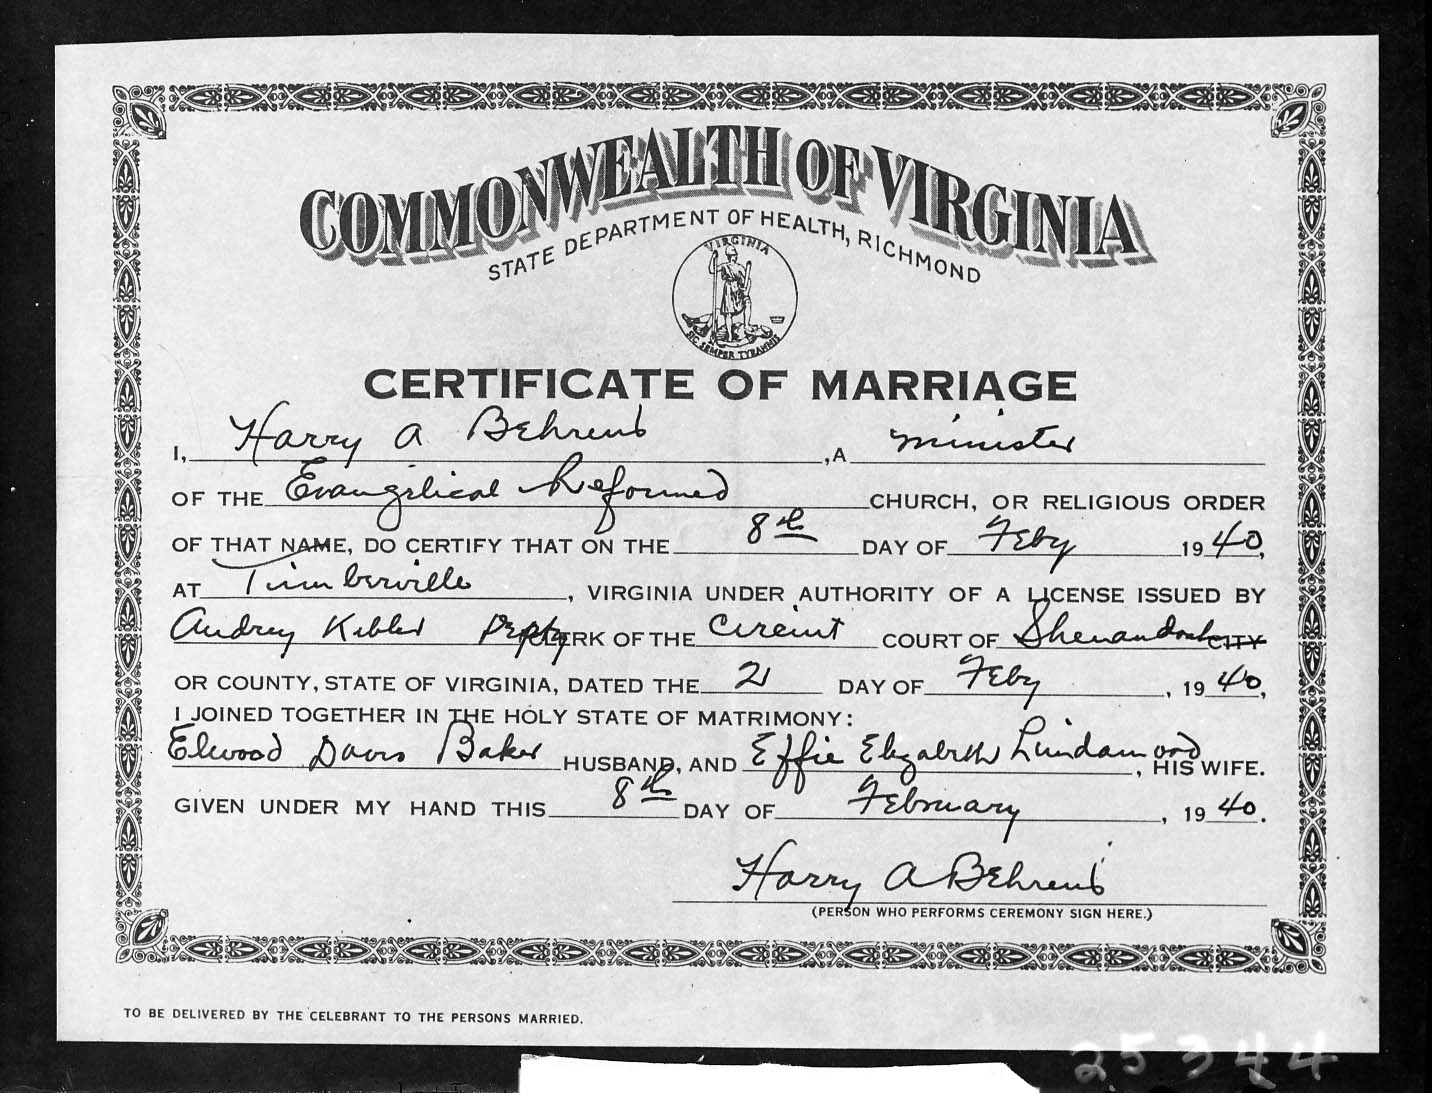 COMMONWEALTH OF VIRGINIA
STATE DEPARTMENT OF HEALTH, RICHMOND
VIRGINIA
SIC SEMPER TYRANNIS
CERTIFICATE OF MARRIAGE
I, Harry A Behrens, A minister
OF THE Evangelical Reformed CHURCH, OR RELIGIOUS ORDER
OF THAT NAME, DO CERTIFY THAT ON THE 8th DAY OF Feby 1940,
AT Timberville, VIRGINIA UNDER AUTHORITY OF A LICENSE ISSUED BY
Audrey Kibler Depty CLERK OF THE Circuit COURT OF Shenandoah CITY
OR COUNTY, STATE OF VIRGINIA, DATED THE 2 DAY OF Feby, 1940,
I JOINED TOGETHER IN THE HOLY STATE OF MATRIMONY:
Elwood Davis Baker HUSBAND, AND Effie Elizabeth Lindamood, HIS WIFE.
GIVEN UNDER MY HAND THIS 8th DAY OF February, 1940.
Harry A Behrens
(PERSON WHO PERFORMS CEREMONY SIGN HERE.)
TO BE DELIVERED BY THE CELEBRANT TO THE PERSONS MARRIED.
25344